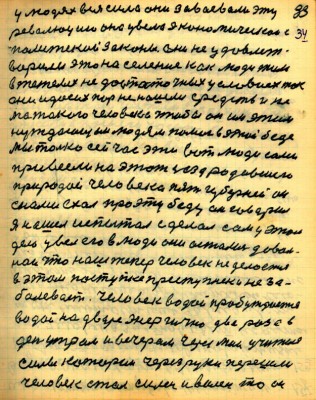 у людях вся сила они завоевали эту 33
революцию она увела экономическое с 34
политической законы они не удовлет-
ворили это население как люди жили
в тяжелых не достаточных условиях так
они и до сих пор не нашли средств и не
на такого человека чтобы он им этим
нуждающим людям помог в этой беде
мы только сей час эти вот люди сами
привели на этот уезд родившего
природой человека пять губерней он
с нами схал про эту беду он говорил
Я нашел испытал сделал сам у этого
дела увел его в люди они остались доволь-
ной что наш теперь человек не делается
в этом поступке преступник не за-
болевает. Человек водой пробуждается
водой на дворе энергично два раза в
день утром и вечером через мои учитие
силы которая через руки перешли
человек стал силен и волен то он